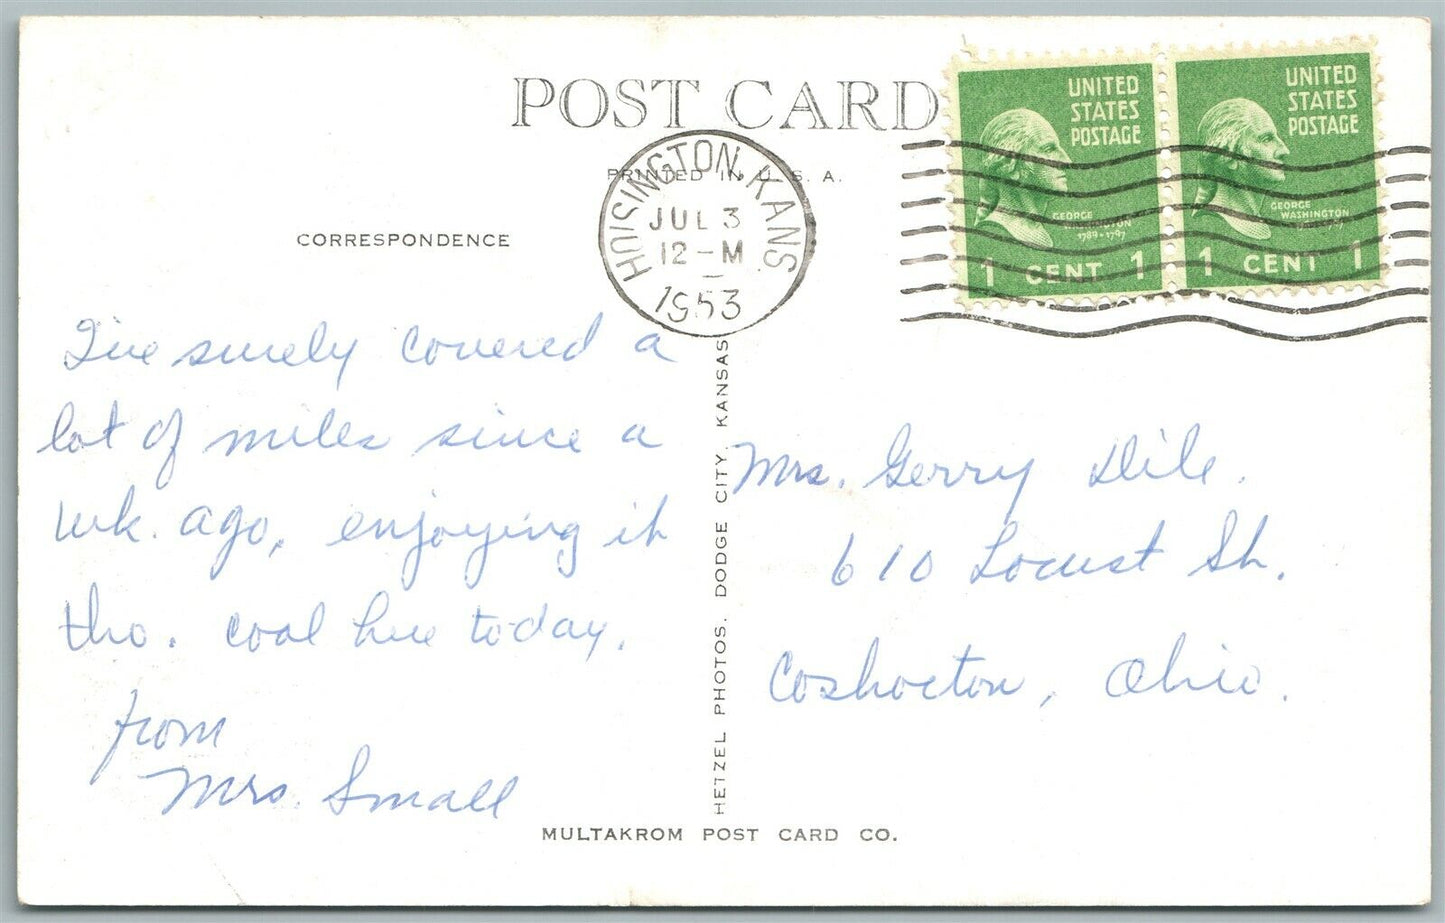 POST CARD
PRINTED IN U. S. A.
CORRESPONDENCE
HOISINGTON, KANS.
JUL 3
12 – M
1953
UNITED
STATES
POSTAGE
GEORGE
WASHINGTON
1789-1797
1 CENT 1
UNITED
STATES
POSTAGE
GEORGE
WASHINGTON
1 CENT 1
I've surely covered a
lot of miles since a
wk. ago, enjoying it
tho. cool here today.
from
Mrs. Small
HETZEL PHOTOS. DODGE CITY, KANSAS
Mrs. Gerry Dile.
610 Locust St.
Coshocton, Ohio.
MULTAKROM POST CARD CO.